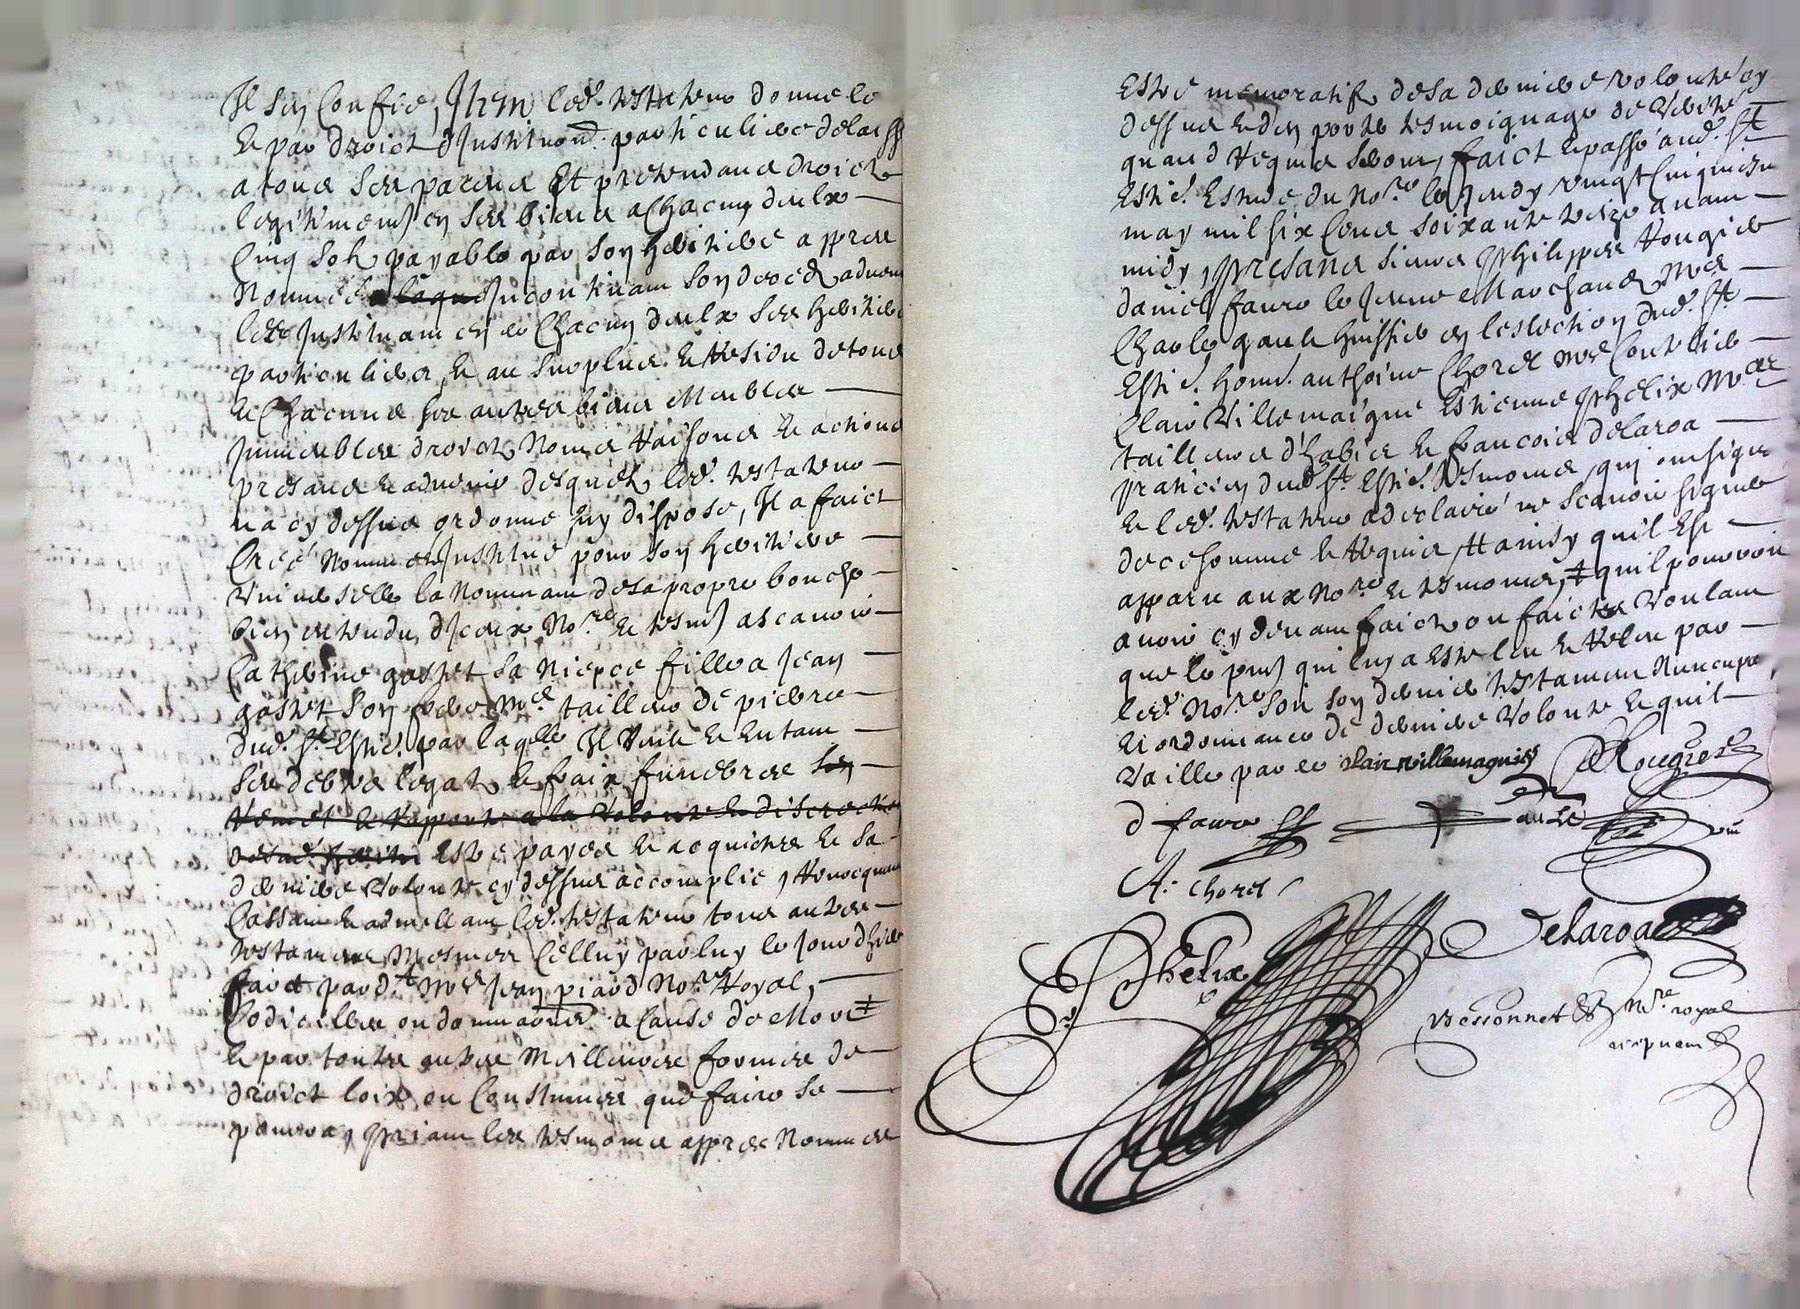 Il s'en confie, Item led. testateur donne le
Et par droict d'Institu^on particuliere delaisse
a tous ses parens Et pretendans droict de
legitimes en ses biens a chacun deulx
Cinq solz payable par son heritiere appres
Nommée Incontinant son deces advenu
les Instituant en ce chacun deulx ses heritiers
particuliers, Et au surplus Et Residu de tous
Et chacuns ses autres biens Meubles
Immeubles droictz Noms Raisons Et actions
presans Et advenir desquelz led. testateur
na cy dessus ordonné ny disposé, Il a faict
Creé Nommé et Institué pour son heritiere
Universelle la Nommant de sa propre bouche
bien entendu, d'Iceux No.re Et tesm. ascavoir
Catherine gostet sa Niepce fille a Jean
gostet son frere M.e tailleur de pierre
dud. St Estie. par laq.lle Il Veult Et Entant
ses debtes legatz Et fraix funebres son
Remet Et Rapporte a la Volonte Et discretion
de sad. heritiere Estre payes Et acquictes Et sa
derniere Volonte cy dessus accomplie, Revocquant
Cassant Et admellant led. testateur tous autres
testamens Mesmes Celluy par luy le jour d'hier
faict pard.t M.e Jean piard No.re Royal,
Codicilles ou dona^ons a Cause de Mort
Et par toutes autres Meilleures formes de
droict loix ou Coustumes que faire se
pourra, Priant les tesmoins appres Nommes
Estre memoratifz de sa derniere volonte cy
dessus Et d'en porter tesmoignage de Verite
quand Requis seront, faict Et passé aud. St
Estie. Estude du No.re le Jeudy vingt Cinquiesme
may mil six Cens soixante treize avant
midy, Presans sieurs Philippes Rougier
daniel faure le Jeune Marchandz M.e
Charle gaule huissier en leslection dud. St
Estie. hon. anthoine Chorel M.e Coutelier
Clair Villemaigne Estienne Phelix M.es
tailleurs d'habis Et francois delaroa
praticien dud. St Estie. tesmoins, qui ont signé
Et led. testateur a declairé ne scavoir signer
de ce somme Et Requis Attandu quil Est
apparu aux No.re Et tesmoins, ‡ quil pouvoit
avoir cy devant faictz ou faictes Voulant
que le pnt qui luy a Este leu Et Releu par
led. No.re soit son dernier testament Nuncupa
Et ordonnance de derniere Volonte Et quil
Vaille par ce clair villemagne PRougier
d faure gaule
A. Chorel
E Phelix Delaroa
Bessonnet No.re royal
recepvant